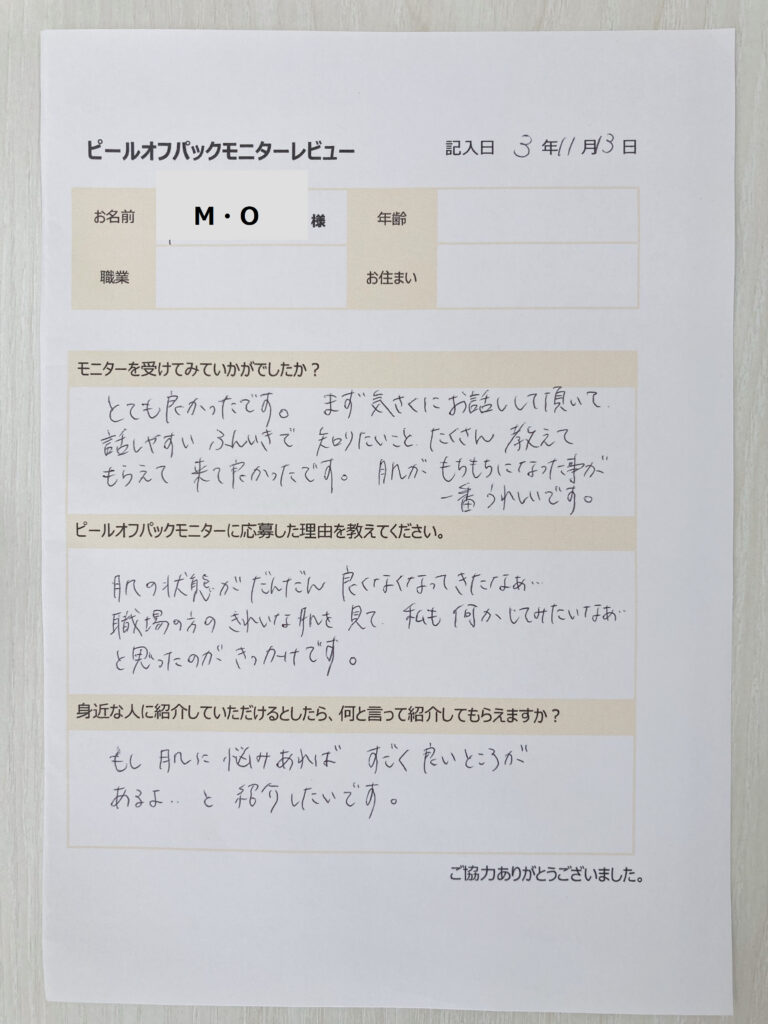 ピールオフパックモニターレビュー 記入日 3年11月13日
お名前 M・O 様 年齢
職業 お住まい
モニターを受けてみていかがでしたか？
とても良かったです。 まず気さくにお話しして頂いて
話しやすい ふんいきで 知りたいこと たくさん 教えて
もらえて 来て良かったです。 肌が もちもちになった事が
一番うれしいです。
ピールオフパックモニターに応募した理由を教えてください。
肌の状態が だんだん 良くなくなってきたなぁ…
職場の方の きれいな肌を 見て 私も 何かしてみたいなぁ…
と思ったのが きっかけです。
身近な人に紹介していただけるとしたら、何と言って紹介してもらえますか？
もし 肌に 悩みあれば すごく 良いところが
あるよ… と 紹介したいです。
ご協力ありがとうございました。